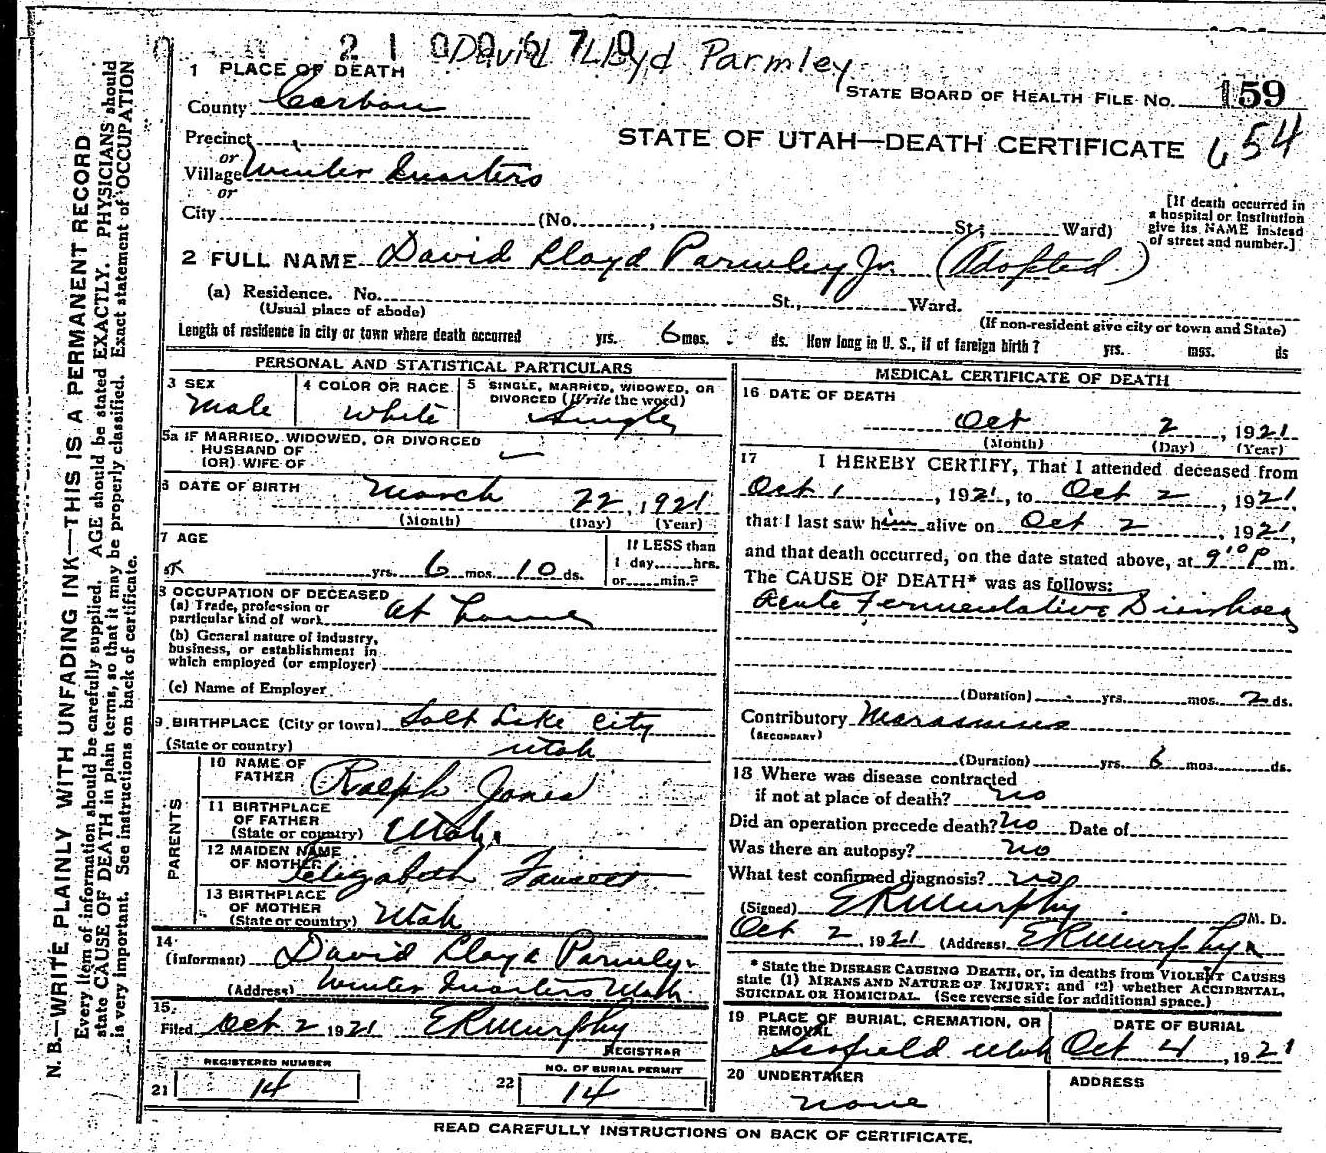 2100670 David Lloyd Parmley
1 PLACE OF DEATH
STATE BOARD OF HEALTH FILE NO. 159
County Carbon
STATE OF UTAH—DEATH CERTIFICATE 654
Precinct
or
Village Winter Quarters
or
City (No. , St.; Ward)
[If death occurred in a hospital or institution give its NAME instead of street and number.]
2 FULL NAME David Lloyd Parmley Jr. (Adopted.)
(a) Residence. No. St., Ward.
(Usual place of abode) (If non-resident give city or town and State)
Length of residence in city or town where death occurred yrs. 6 mos. ds. How long in U. S., if of foreign birth? yrs. mos. ds
PERSONAL AND STATISTICAL PARTICULARS
3 SEX Male
4 COLOR OR RACE White
5 SINGLE, MARRIED, WIDOWED, OR DIVORCED (Write the word) Single
5a IF MARRIED, WIDOWED, OR DIVORCED
HUSBAND OF
(OR) WIFE OF
6 DATE OF BIRTH March 22, 1921
(Month) (Day) (Year)
7 AGE yrs. 6 mos. 10 ds.
If LESS than
1 day hrs.
or min.?
8 OCCUPATION OF DECEASED
(a) Trade, profession or
particular kind of work At home
(b) General nature of industry,
business, or establishment in
which employed (or employer)
(c) Name of Employer
9 BIRTHPLACE (City or town) Salt Lake City
(State or country) Utah
PARENTS
10 NAME OF
FATHER Ralph Jones
11 BIRTHPLACE
OF FATHER
(State or country) Utah
12 MAIDEN NAME
OF MOTHER Elizabeth Fausett
13 BIRTHPLACE
OF MOTHER
(State or country) Utah
14
(Informant) David Lloyd Parmley
(Address) Winter Quarters Utah
15.
Filed Oct 2 1921 ERMurphy
REGISTRAR
REGISTERED NUMBER
21 14
NO. OF BURIAL PERMIT
22 14
MEDICAL CERTIFICATE OF DEATH
16 DATE OF DEATH
Oct 2, 1921
(Month) (Day) (Year)
17 I HEREBY CERTIFY, That I attended deceased from
Oct 1, 1921, to Oct 2, 1921,
that I last saw him alive on Oct 2, 1921,
and that death occurred, on the date stated above, at 9:10 P m.
The CAUSE OF DEATH* was as follows:
Acute Fermentative Diarrhoea
(Duration) yrs. mos. 2 ds.
Contributory Marasmus
(SECONDARY)
(Duration) yrs. 6 mos. ds.
18 Where was disease contracted
if not at place of death? no
Did an operation precede death? No Date of
Was there an autopsy? no
What test confirmed diagnosis? no
(Signed) ERMurphy M. D.
Oct 2, 1921 (Address) ERMurphy
* State the DISEASE CAUSING DEATH, or, in deaths from VIOLENT CAUSES
state (1) MEANS AND NATURE OF INJURY; and (2) whether ACCIDENTAL,
SUICIDAL OR HOMICIDAL. (See reverse side for additional space.)
19 PLACE OF BURIAL, CREMATION, OR REMOVAL
Scofield Utah
DATE OF BURIAL
Oct 4, 1921
20 UNDERTAKER
none
ADDRESS
READ CAREFULLY INSTRUCTIONS ON BACK OF CERTIFICATE.
N. B.—WRITE PLAINLY WITH UNFADING INK—THIS IS A PERMANENT RECORD
Every item of information should be carefully supplied. AGE should be stated EXACTLY. PHYSICIANS should
state CAUSE OF DEATH in plain terms, so that it may be properly classified. Exact statement of OCCUPATION
is very important. See instructions on back of certificate.